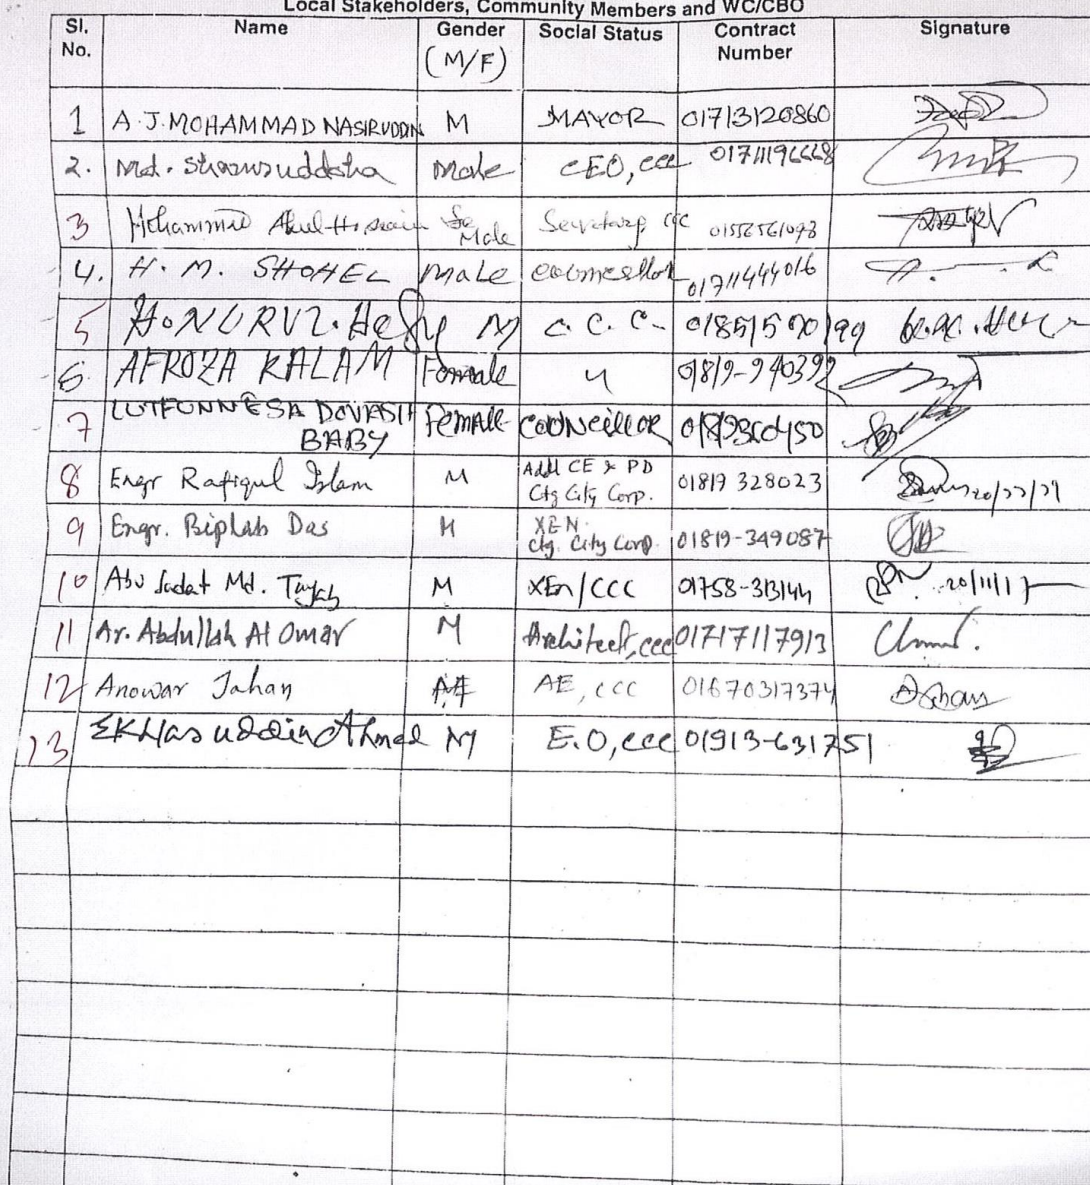 Local Stakeholders, Community Members and WC/CBO
Sl. No. Name Gender (M/F) Social Status Contract Number Signature
1 A.J. MOHAMMAD NASIRUDDIN M MAYOR 01713120860
2. Md. Shamsuddoha Male CEO, ccc 01711196668
3 Mohammad Abul Hossain Male Secretary ccc
4. H. M. SHOHEL Male councellor 01711444016
5 M C. C. C-
6. AFROZA KALAM Female " 01819-940392
7 LUTFUNNESA DOVASH BABY Female COUNCILLOR
8 Engr Rafiqul Islam M Addl CE & PD Ctg City Corp. 01819 328023
9 Engr. Biplab Das M XEN Ctg. City Corp. 01819-349087
10 Abu Sadat Md. Tayab M XEn/CCC 01758-313144 20/11/17
11 Ar. Abdullah Al Omar M Architect, ccc 01717117913
12 Anowar Jahan AE, CCC 01670317374
13 Ahmed M E.O, ccc 01913-631751